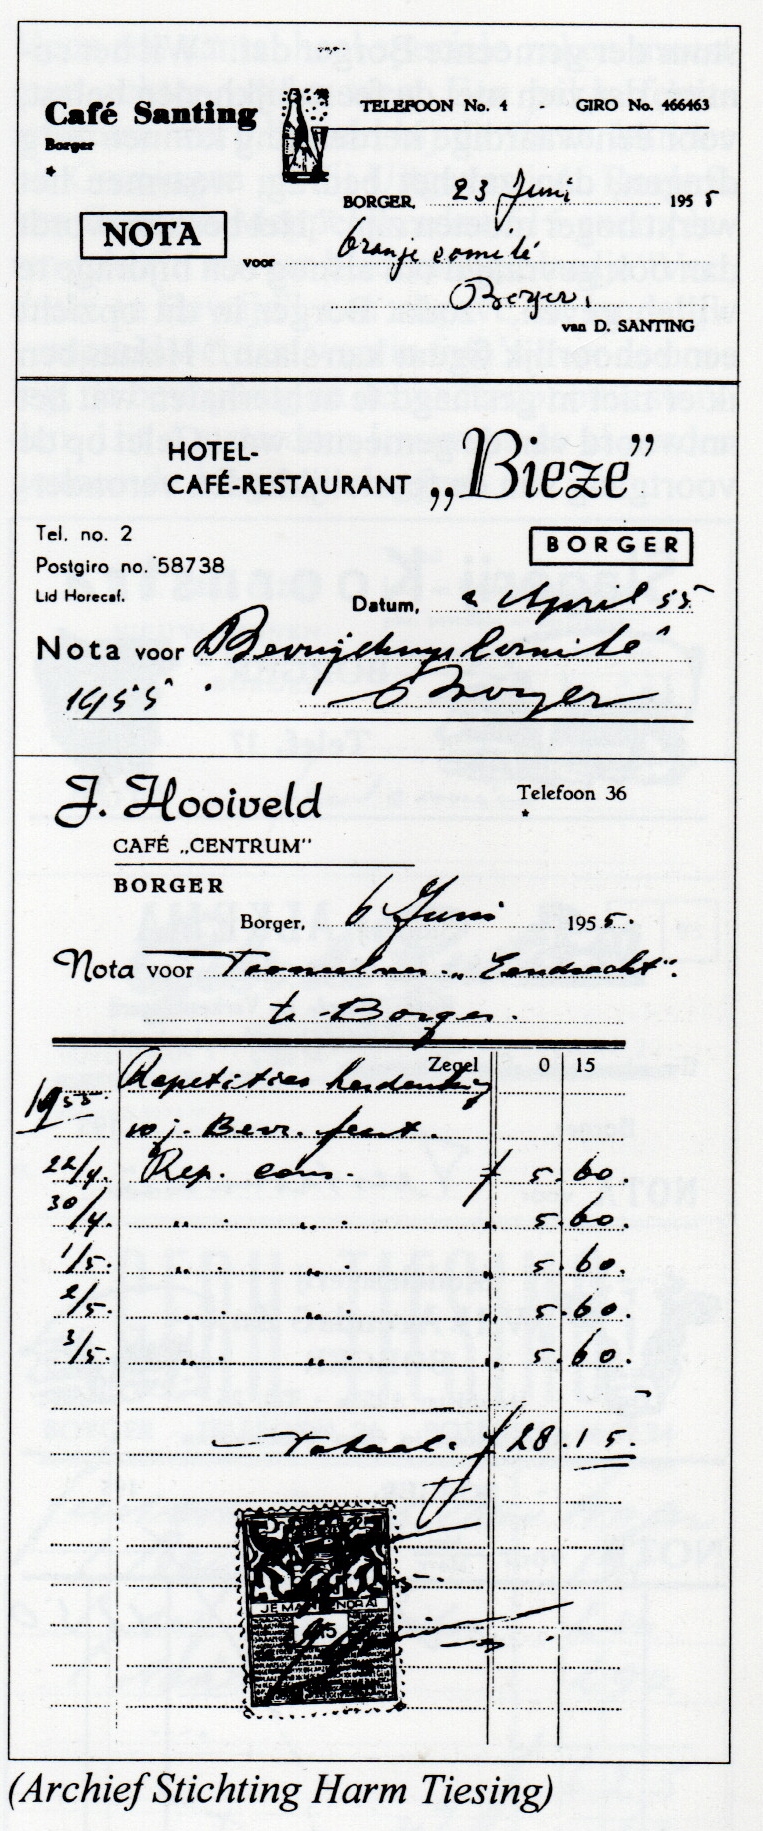 Café Santing
Borger
TELEFOON No. 4 - GIRO No. 466463
BORGER, 23 Juni 1955
NOTA
voor Oranje comité
Borger.
van D. SANTING
HOTEL-
CAFÉ-RESTAURANT „Bieze”
Tel. no. 2
BORGER
Postgiro no. 58738
Lid Horecaf.
Datum, April 55
Nota voor Bevrijdings Comité
1955 Borger
J. Hooiveld
Telefoon 36
CAFÉ „CENTRUM”
BORGER
Borger, 6 Juni 1955.
Nota voor Toneelver. „Eendracht”.
te Borger.
Zegel 0 15
1955 Repetities herdenking
10 j. Bevr. feest.
22/4. Rep. cons. ƒ 5.60.
30/4. „ . „ . „ 5.60.
1/5. „ . „ . „ 5.60.
2/5. „ . „ . „ 5.60.
3/5. „ . „ . „ 5.60.
Totaal. ƒ 28.15.
JE MAINTIENDRAI
15
(Archief Stichting Harm Tiesing)